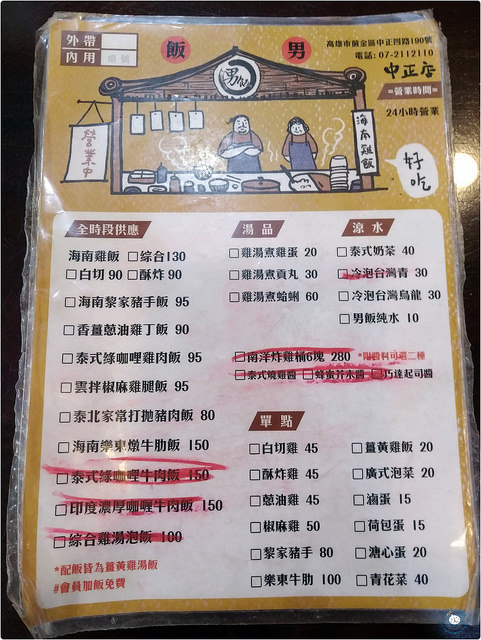 外帶
內用
飯 男
男飯
高雄市前金區中正四路190號
電話：07-2112110
中正店
=營業時間=
24小時營業
營業中
海南雞飯
好吃
全時段供應
海南雞飯 □綜合130
□白切 90 □酥炸 90
□海南黎家豬手飯 95
□香薑蔥油雞丁飯 90
□泰式綠咖哩雞肉飯 95
□雲拌椒麻雞腿飯 95
□泰北家常打拋豬肉飯 80
□海南樂東燉牛肋飯 150
□泰式綠咖哩牛肉飯 150
□印度濃厚咖哩牛肉飯 150
□綜合雞湯泡飯 100
*配飯皆為薑黃雞湯飯
#會員加飯免費
湯品
□雞湯煮雞蛋 20
□雞湯煮貢丸 30
□雞湯煮蛤蜊 60
涼水
□泰式奶茶 40
□冷泡台灣青 30
□冷泡台灣烏龍 30
□男飯純水 10
□南洋炸雞桶6塊 280 *附醬料可選二種
□泰式燒雞醬 □蜂蜜芥末醬 □巧達起司醬
單點
□白切雞 45
□酥炸雞 45
□蔥油雞 45
□椒麻雞 50
□黎家豬手 80
□樂東牛肋 100
□薑黃雞飯 20
□廣式泡菜 20
□滷蛋 15
□荷包蛋 15
□溏心蛋 20
□青花菜 40